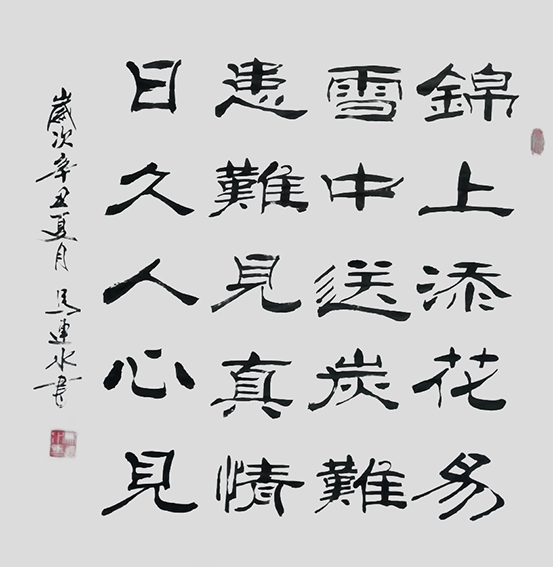 錦上添花易
雪中送炭難
患難見真情
日久人心見
歲次辛丑夏月 馬連水書